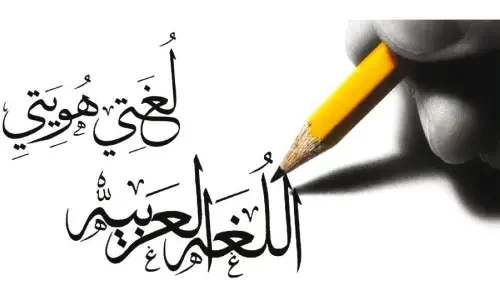 لُغَتِي هُوِيَتِي
اللُغَه العَرَبِيَّه